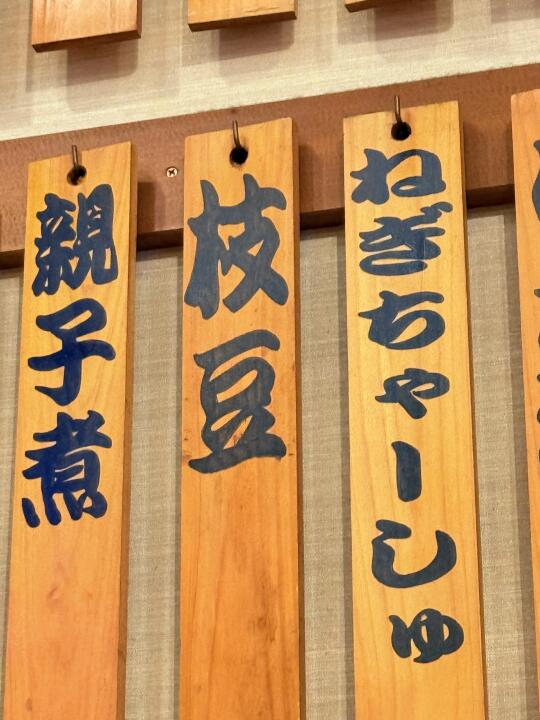 ねぎちゃーしゅ
枝豆
親子煮